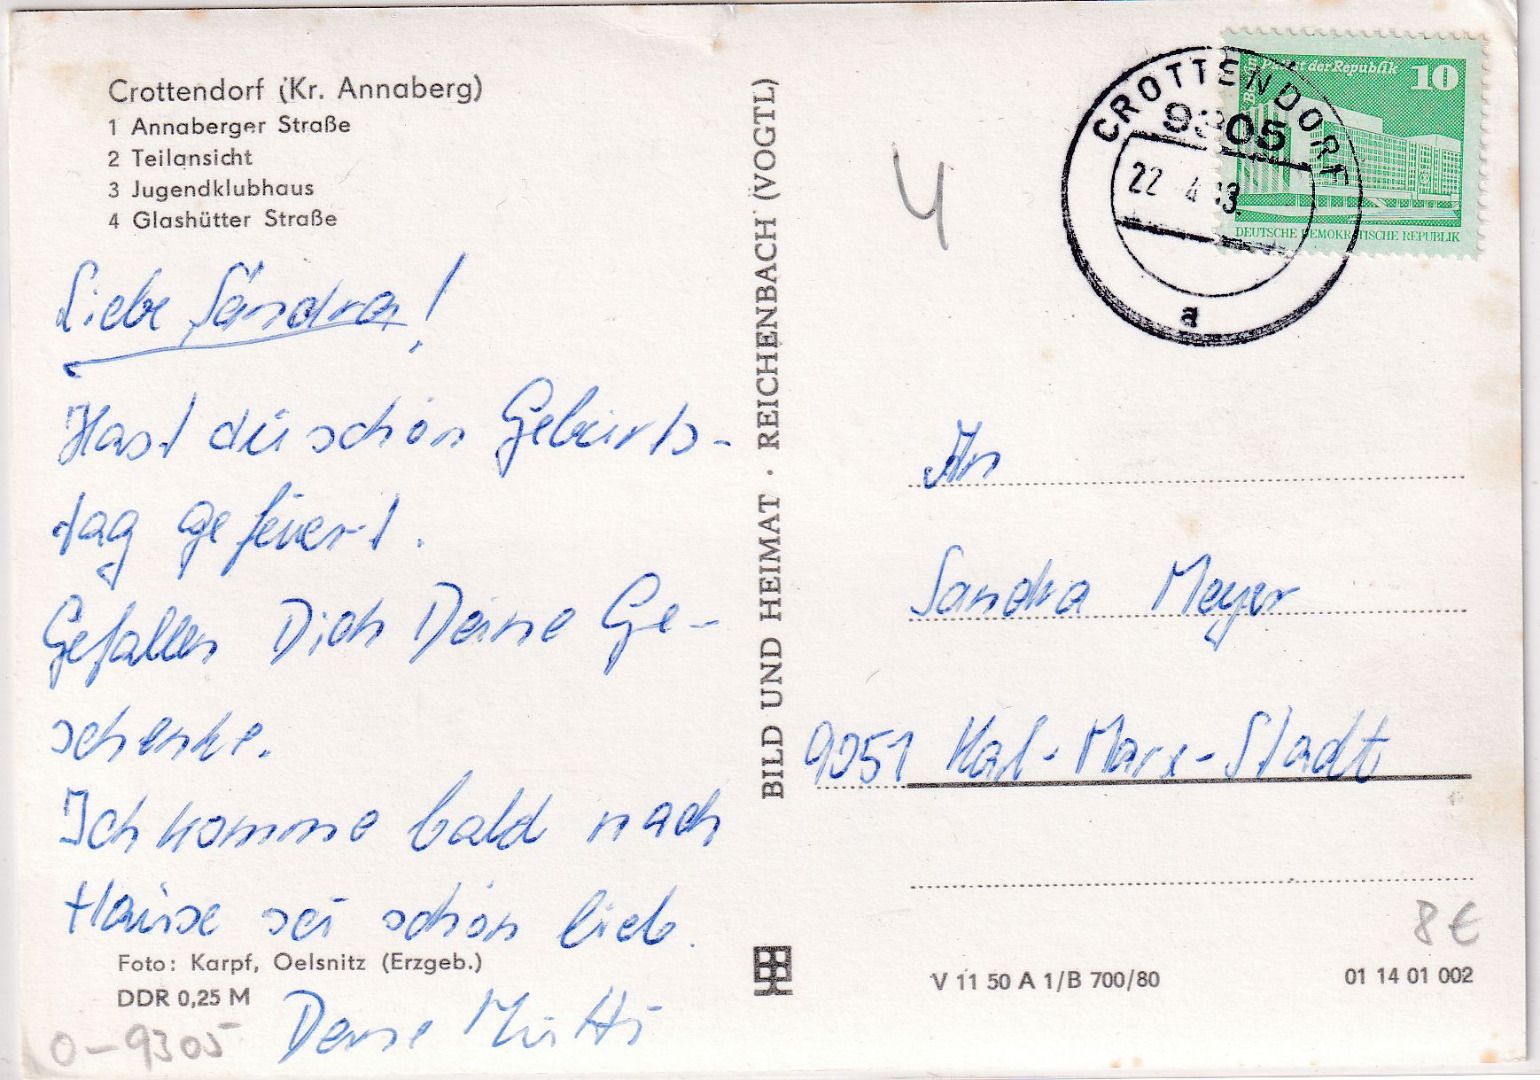 Crottendorf (Kr. Annaberg)
1 Annaberger Straße
2 Teilansicht
3 Jugendklubhaus
4 Glashütter Straße
Liebe Sandra!
Hast du schön Geburts-
tag gefeiert.
Gefallen Dich Deine Ge-
schenke.
Ich komme bald nach
Hause sei schön lieb.
Deine Mutti
Foto: Karpf, Oelsnitz (Erzgeb.)
DDR 0,25 M
0-9305
BILD UND HEIMAT · REICHENBACH (VOGTL)
4
CROTTENDORF
9305
22.4.83
a
Palast der Republik
10
DEUTSCHE DEMOKRATISCHE REPUBLIK
An
Sandra Meyer
9051 Karl-Marx-Stadt
8€
V 11 50 A 1/B 700/80
01 14 01 002